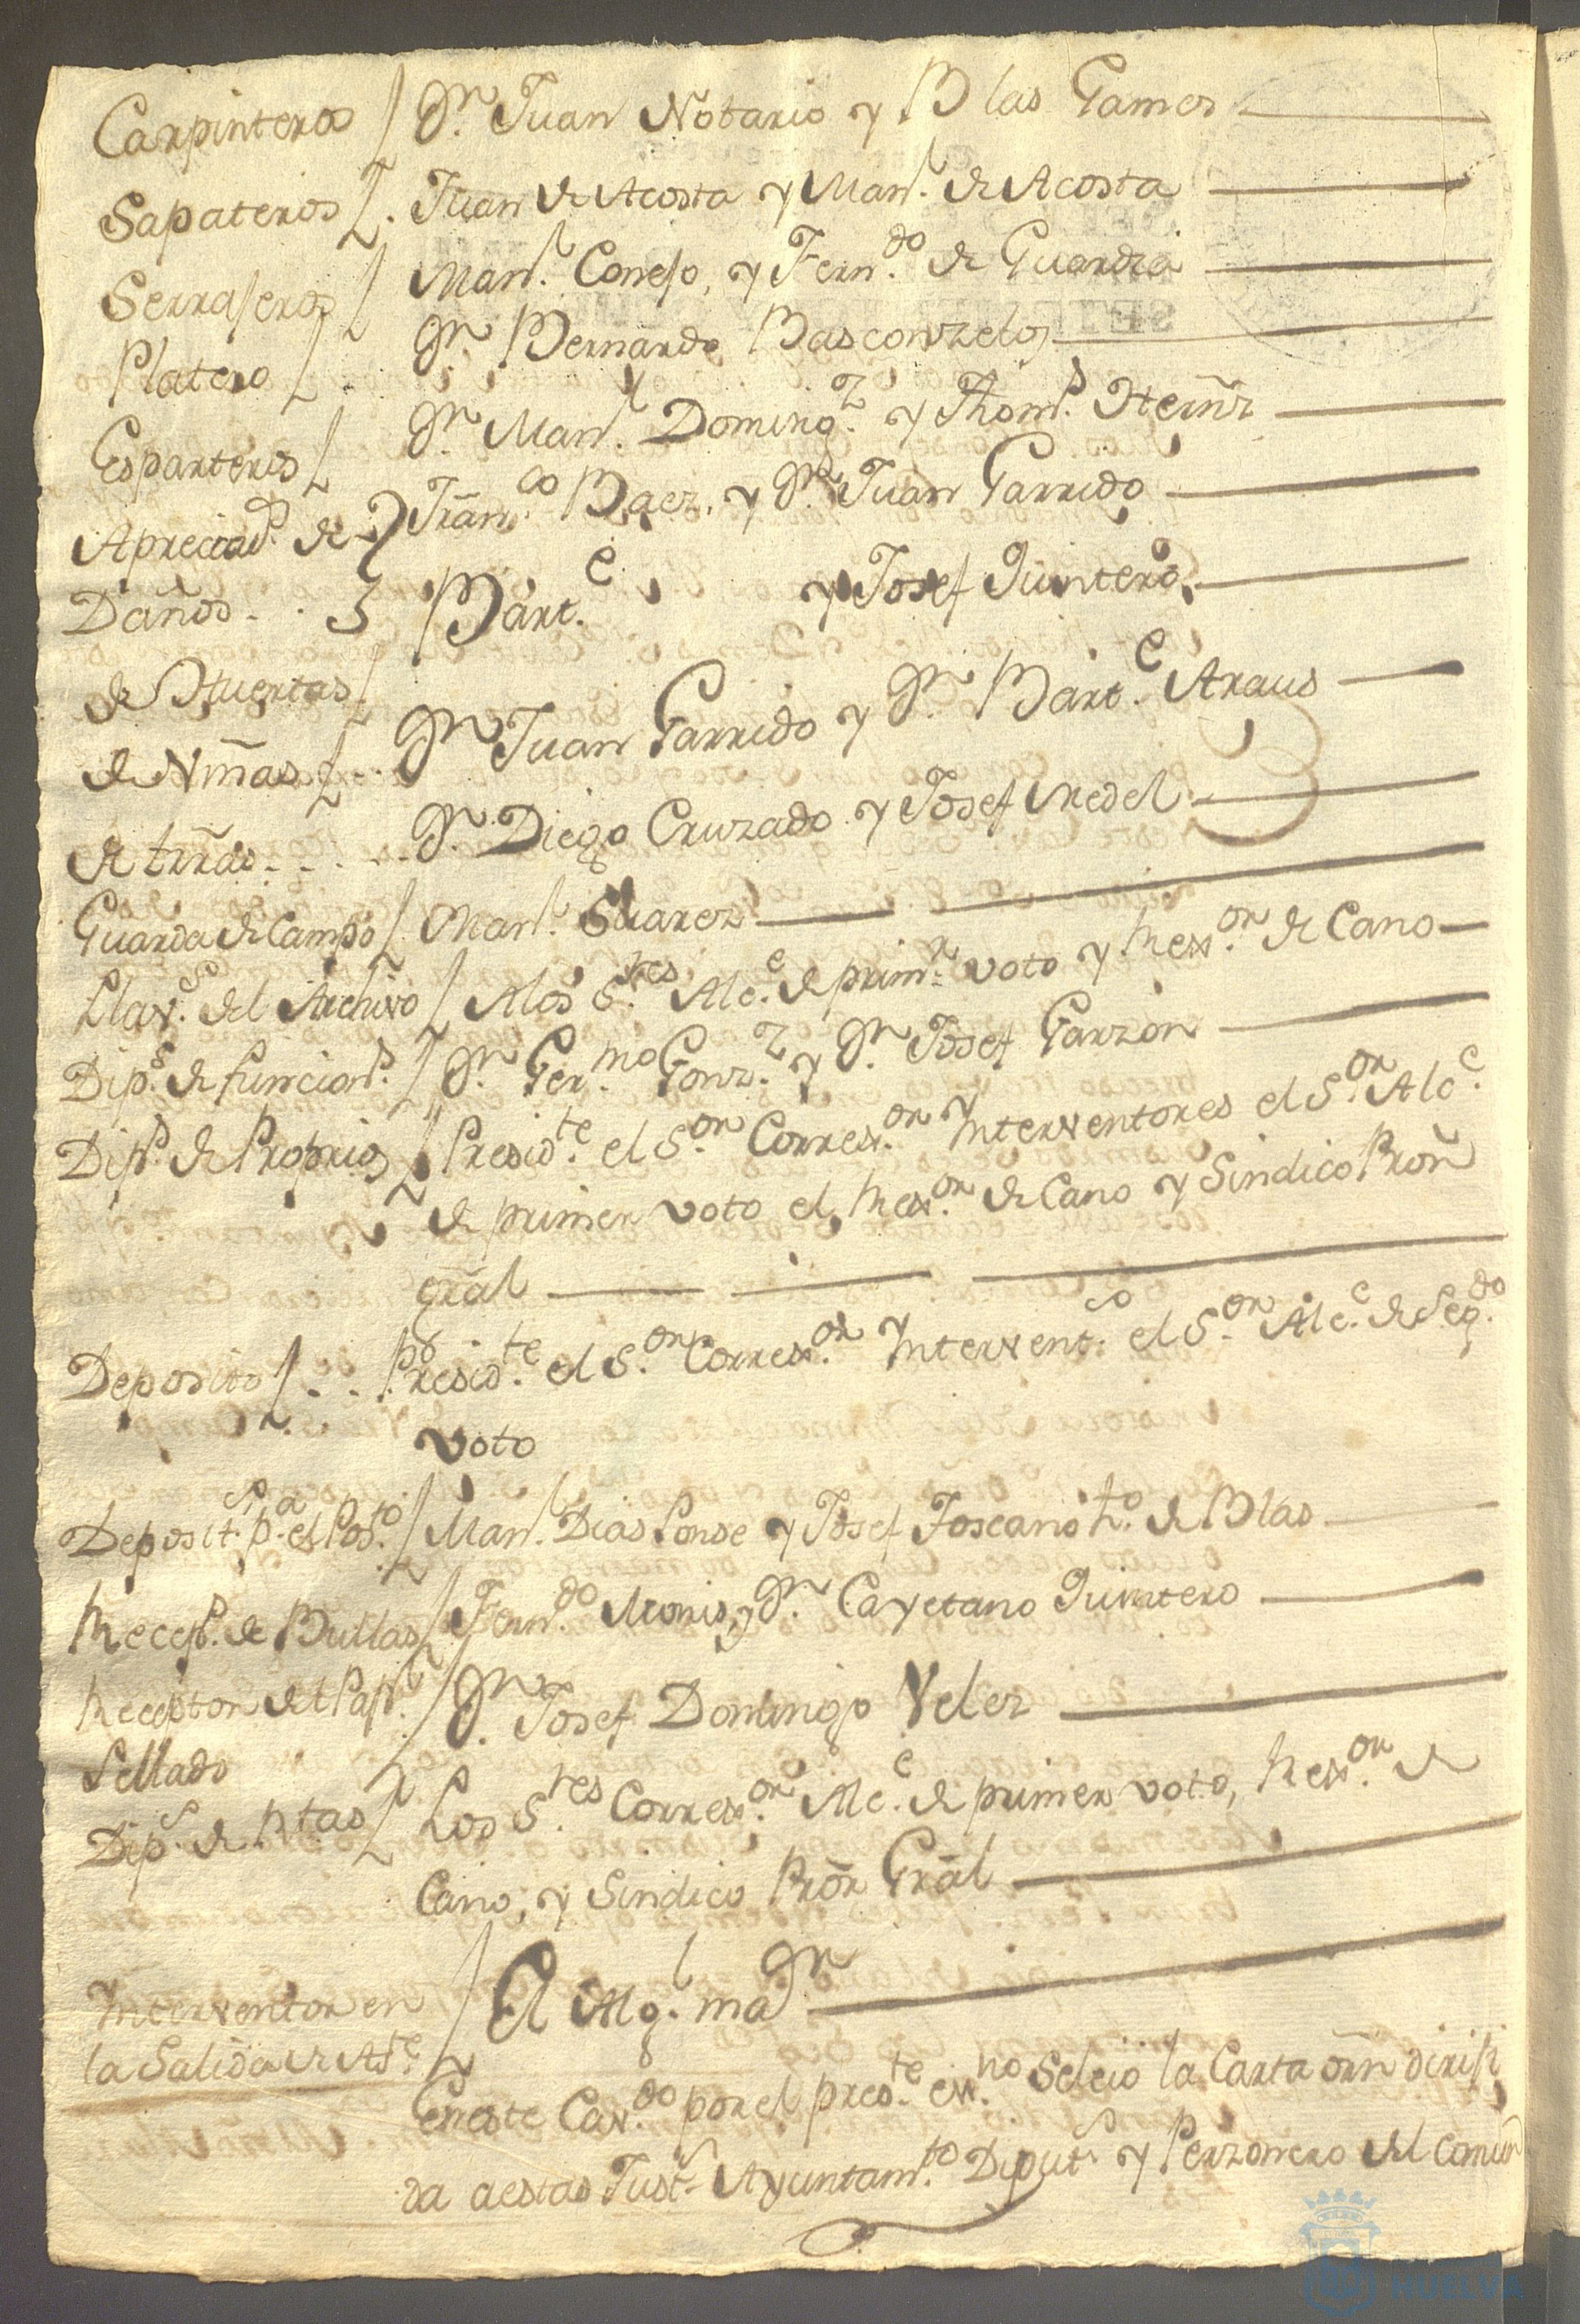 Carpinteros / Dn. Juan Notario y Blas Gamez
Sapateros / Juan de Acosta y Manl. de Acosta
Serrajeros / Manl. Conejo, y Ferndo. de Guardia
Platero / Dn. Bernardo Basconzelos
Esparteros / Dn. Manl. Domingz. y Thoms. Hernz
Apreciads. de Franco. Baez, y Dn. Juan Garrido
Daños
de Huertas / Barte. y Josef Quintero
de Viñas / Dn. Juan Garrido y Dn. Barte. Araus
de trrās Dn. Diego Cruzado y Josef Redel
Guarda de Campo / Manl. Suarez
Llavs. del Archivo / Alos Sres. Alce. de primr. voto y Rexor. de Cano
Dips. de funcions. / Dn. Germo. Gonzz. y Dn. Josef Garzon
Dips. de Proprios / Presidte. el Sor. Correxor. Ynterventores el Sor. Alce.
de primer voto el Rexor. de Cano y Sindico Pror̃
grāl
Deposito / Presidte. el Sor. Correxor. Yntervents. el Sor. Alce. de Segdo.
voto
Deposits. pa. el Posto. / Manl. Dias Ponse y Josef Toscano ho. de Blas
Receps. de Bullas / Ferndo. Moris, y Dn. Cayetano Quintero
Receptor del Papl. / Dn. Josef Domingo Velez
Sellado
Dips. de Rtas / Los Sres. Correxor. Alce. de primer voto, Rexor. de
Cano, y Sindico Prōr Grāl
Ynterventor en / El Algl. mayor
la Salida de Azte.
En este Cavdo. por el preste. essno. Seleio la Carta orñ diriji
da a estas Justs. Ayuntamto. Diputs. y Perzonero del Comun
HUELVA